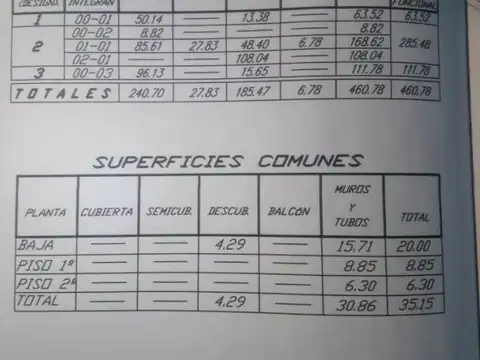 (DESIGN). INTEGRAN FUNCIONAL
1 00-01 50.14 — 13.38 — 63.52 63.52
00-02 8.82 — — — 8.82
2 01-01 85.61 27.83 48.40 6.78 168.62 285.48
02-01 — — 108.04 — 108.04
3 00-03 96.13 — 15.65 — 111.78 111.78
TOTALES 240.70 27.83 185.47 6.78 460.78 460.78
SUPERFICIES COMUNES
PLANTA CUBIERTA SEMICUB. DESCUB. BALCON MUROS Y TUBOS TOTAL
BAJA — — 4.29 — 15.71 20.00
PISO 1º — — — — 8.85 8.85
PISO 2º — — — — 6.30 6.30
TOTAL — — 4.29 — 30.86 35.15